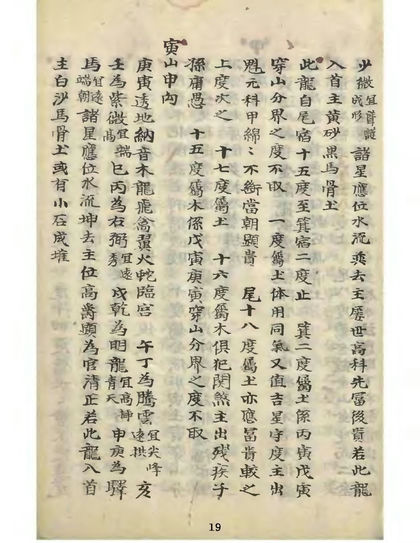 少微宜聳說成形諸星應位水流巽去主歷世高科先富後貴若此龍
入首主黃砂黑馬骨土
此龍自尾宿十五度至箕宿二度止 箕二度屬土係丙寅戊寅
穿山分界之度不取 一度屬土体用同氣又值吉星守度主出
魁元科甲綿〻不衝當朝顯貴 尾十八度屬土亦應富貴較之
上度次之 十七度屬土 十六度屬木俱犯関煞主出残疾子
孫庸愚 十五度屬木係戊寅庚寅穿山分界之度不取
寅山申向
庚寅透地納音木龍 禽翼火蛇臨宮 午丁為騰雲宜尖峰遠拱 亥
壬為紫微宜端高 巳丙為右弼宜遠秀 戌乾為明龍宜高聳青天 申庚為驛
馬宜遠端朝諸星應位水流坤去主位高爵顕為官清正若此龍入首
主白沙馬骨土或有小石成堆
19